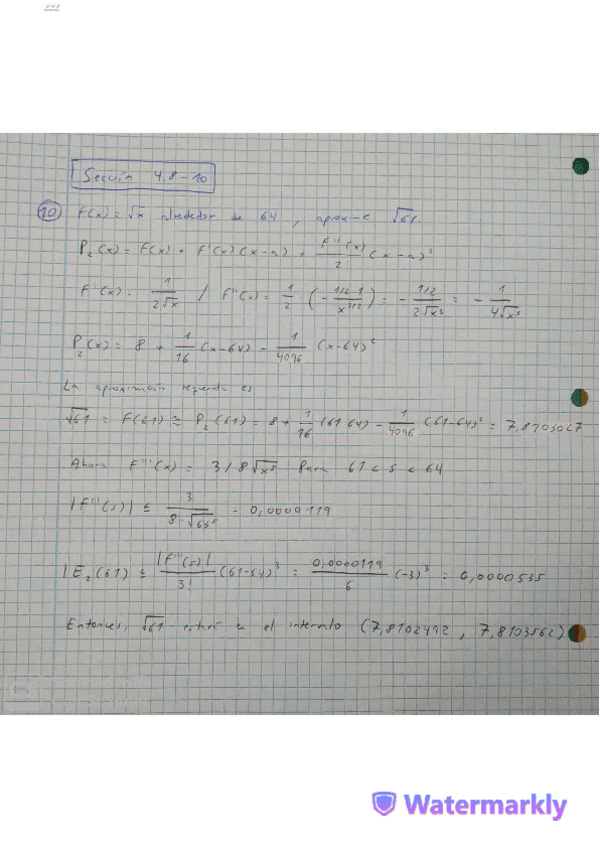 Sección 4.8-10
10 F(x) = √x alrededor de 64, aproxime √61.
P₂(x) = F(x) + F'(x)(x-a) + F''(x)/2! (x-a)²
F'(x) = 1/(2√x) / F''(x) = 1/2 · (- 1/2·1/x^(3/2)) = - (1/2)/(2√x³) = - 1/(4√x³)
P₂(x) = 8 + 1/16 (x-64) - 1/4096 (x-64)²
La aproximación requerida es
√61 = F(61) ≅ P₂(61) = 8 + 1/16 (61-64) - 1/4096 (61-64)² = 7,8103027
Ahora F'''(x) = 3/8√x⁵ Para 61 < s < 64
|F'''(s)| ≤ 3/(8·√) = 0,0000119
|E₂(61) ≤ |F'''(s)|/3! (61-64)³ = 0,0000119/6 (-3)³ = 0,0000535
Entonces, √61 estará en el intervalo (7,8102492, 7,8103562)
Watermarkly